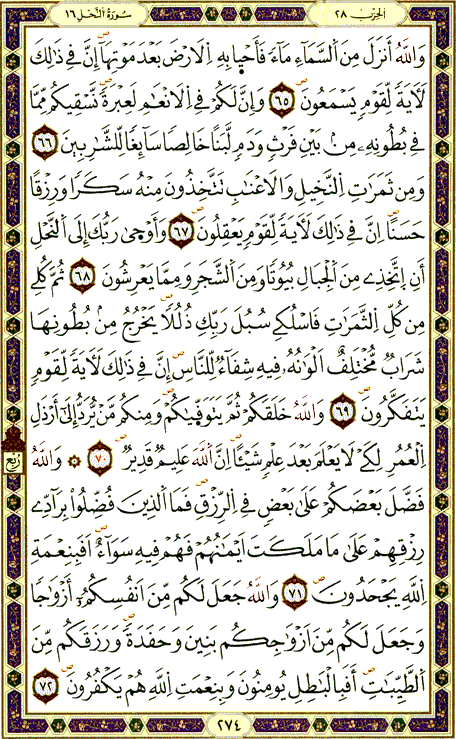 الحِزْب ٢٨
سُورَةُ النَّحْل ١٦
وَاللَّهُ أَنزَلَ مِنَ السَّمَاءِ مَاءً فَأَحْيَا بِهِ الْأَرْضَ بَعْدَ مَوْتِهَا إِنَّ فِي ذَٰلِكَ
لَآيَةً لِّقَوْمٍ يَسْمَعُونَ ٦٥ وَإِنَّ لَكُمْ فِي الْأَنْعَٰمِ لَعِبْرَةً نَّسْقِيكُم مِّمَّا
فِي بُطُونِهِ مِنۢ بَيْنِ فَرْثٍ وَدَمٍ لَّبَنًا خَالِصًا سَآئِغًا لِّلشَّٰرِبِينَ ٦٦
وَمِن ثَمَرَٰتِ النَّخِيلِ وَالْأَعْنَٰبِ تَتَّخِذُونَ مِنْهُ سَكَرًا وَرِزْقًا
حَسَنًا إِنَّ فِي ذَٰلِكَ لَآيَةً لِّقَوْمٍ يَعْقِلُونَ ٦٧ وَأَوْحَىٰ رَبُّكَ إِلَى النَّحْلِ
أَنِ اِتَّخِذِے مِنَ الْجِبَالِ بُيُوتًا وَمِنَ الشَّجَرِ وَمِمَّا يَعْرِشُونَ ٦٨ ثُمَّ كُلِے
مِن كُلِّ الثَّمَرَٰتِ فَاسْلُكِے سُبُلَ رَبِّكِ ذُلُلًا يَخْرُجُ مِنۢ بُطُونِهَا
شَرَابٌ مُّخْتَلِفٌ أَلْوَٰنُهُ فِيهِ شِفَآءٌ لِّلنَّاسِ إِنَّ فِي ذَٰلِكَ لَآيَةً لِّقَوْمٍ
يَتَفَكَّرُونَ ٦٩ وَاللَّهُ خَلَقَكُمْ ثُمَّ يَتَوَفَّيٰكُمْ وَمِنكُم مَّنْ يُّرَدُّ إِلَىٰ أَرْذَلِ
الْعُمُرِ لِكَےْ لَا يَعْلَمَ بَعْدَ عِلْمٍ شَيْـًٔا إِنَّ اللَّهَ عَلِيمٌ قَدِيرٌ ٧٠ ۞ وَاللَّهُ
رُبُع
فَضَّلَ بَعْضَكُمْ عَلَىٰ بَعْضٍ فِي الرِّزْقِ فَمَا الَّذِينَ فُضِّلُوا بِرَآدِّے
رِزْقِهِمْ عَلَىٰ مَا مَلَكَتَ اَيْمَٰنُهُمْ فَهُمْ فِيهِ سَوَآءٌ اَفَبِنِعْمَةِ
اللَّهِ يَجْحَدُونَ ٧١ وَاللَّهُ جَعَلَ لَكُم مِّنَ اَنفُسِكُمُ أَزْوَٰجًا
وَجَعَلَ لَكُم مِّنَ اَزْوَٰجِكُم بَنِينَ وَحَفَدَةً وَرَزَقَكُم مِّنَ
الطَّيِّبَٰتِ أَفَبِالْبَٰطِلِ يُومِنُونَ وَبِنِعْمَتِ اللَّهِ هُمْ يَكْفُرُونَ ٧٢
٢٧٤